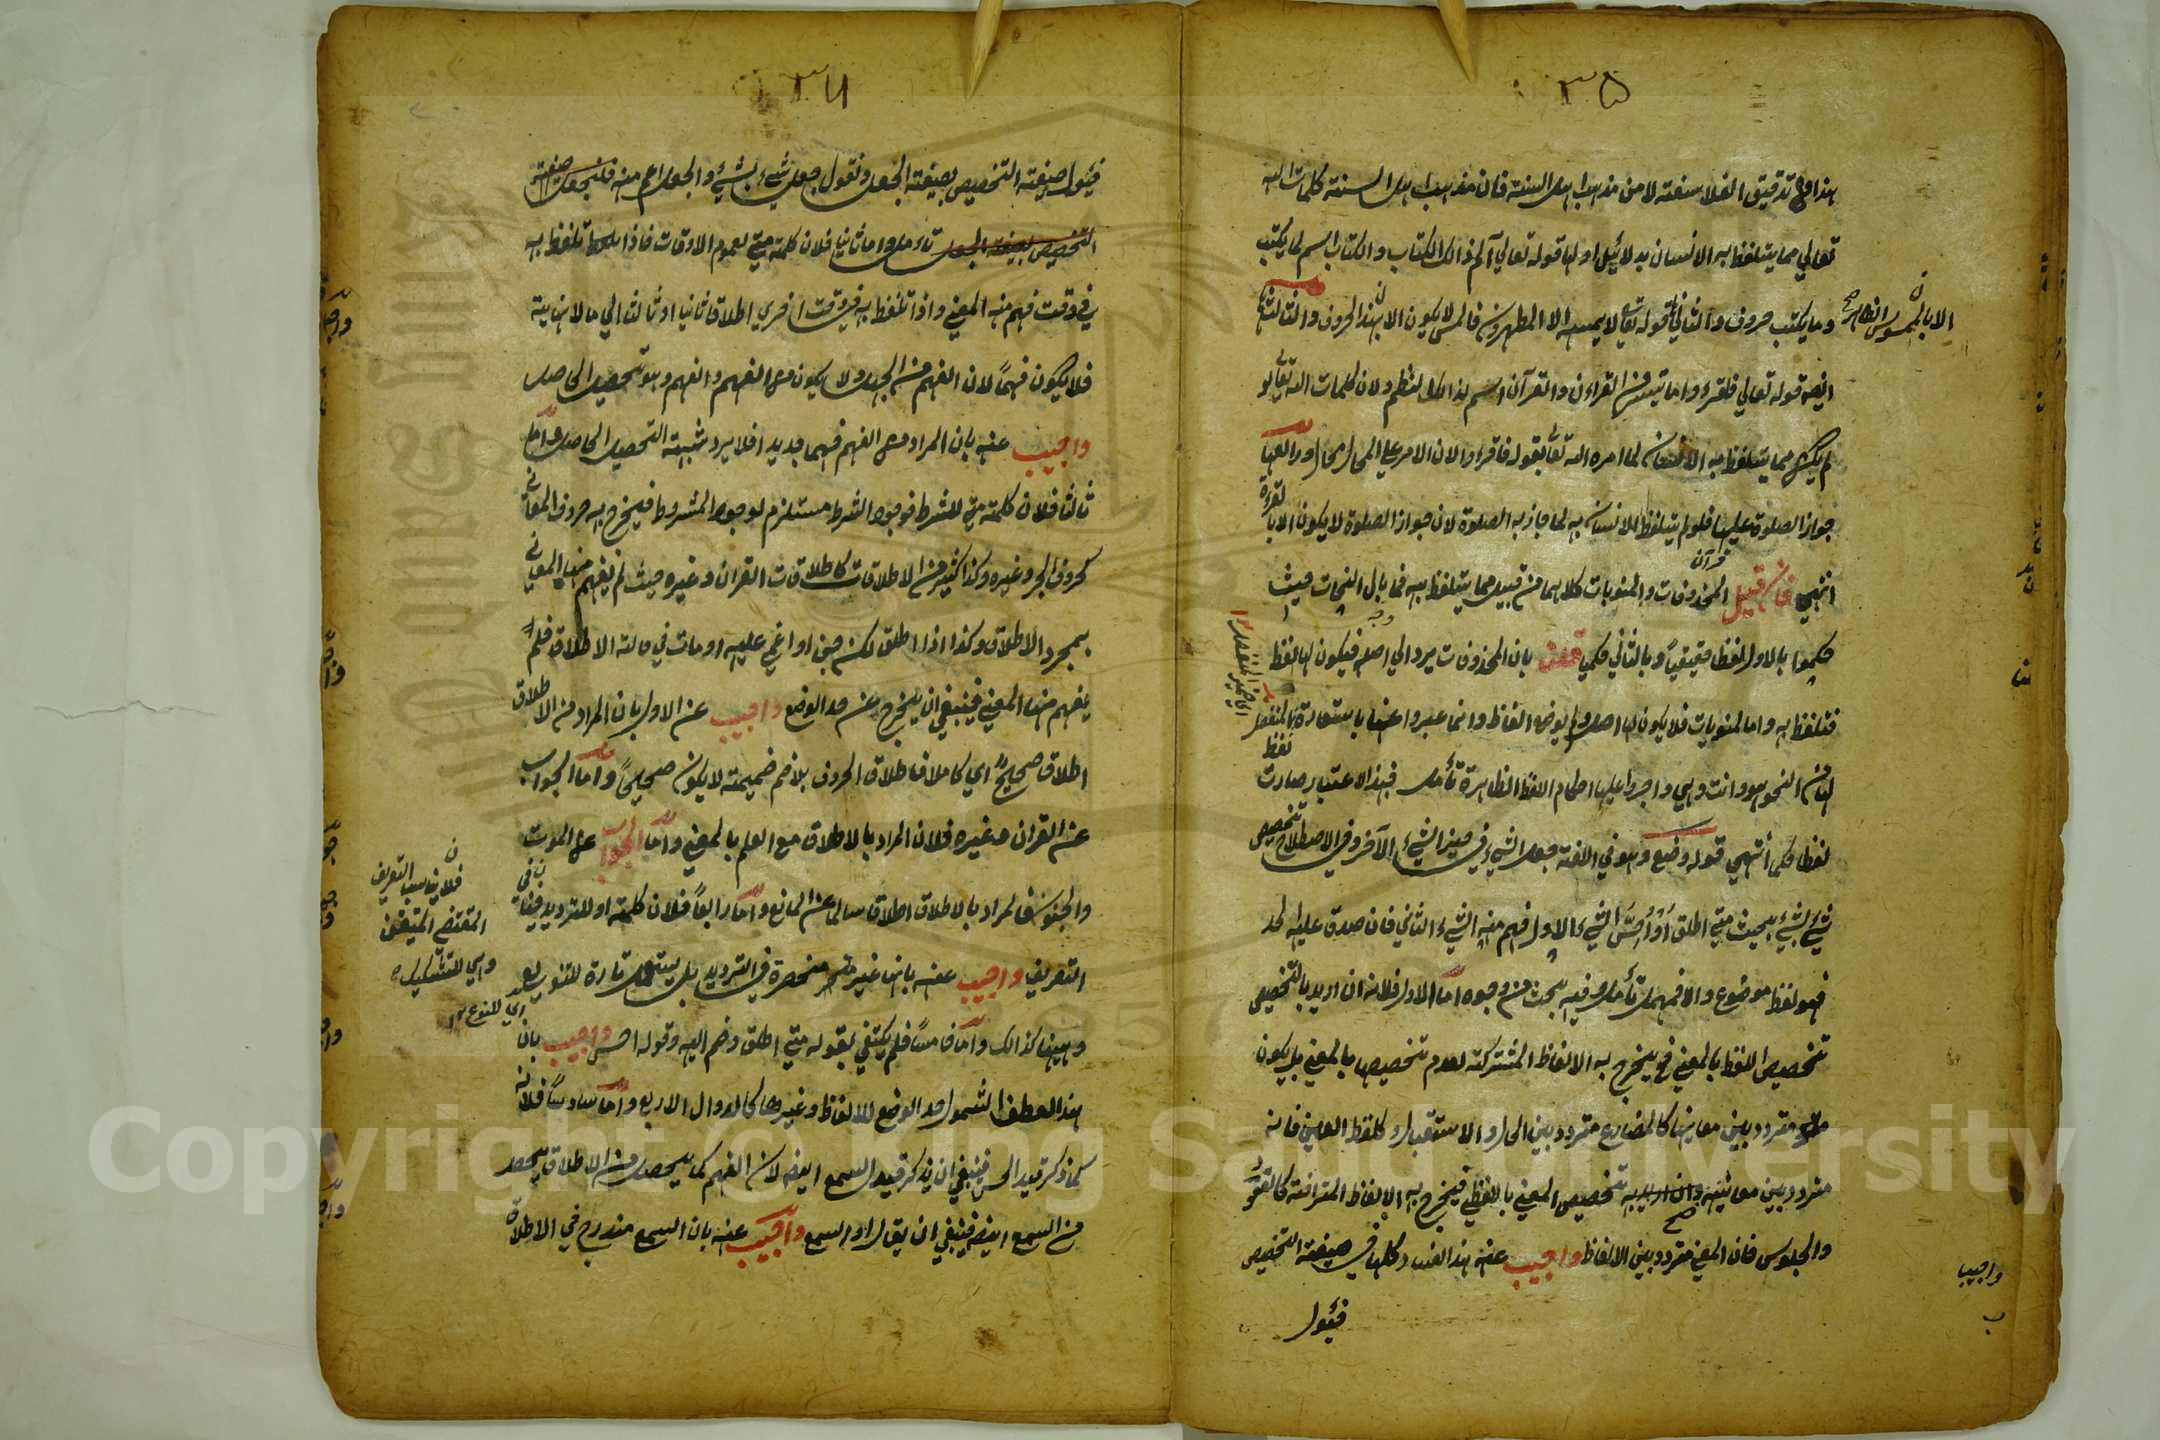 ٣٥
هذا وفي تدقيق الفلاسفة لا من مذهب اهل السنة فان مذهب اهل السنة كلمات الله
تعالي مما يتلفظ به الانسان بدلائل اولها قوله تعالي آلم ذالك الكتاب والكتاب اسم لما يكتب
وما يكتب حروف والثاني قوله تع لا يمسه الا المطهرون فالمس لا يكون الا بهذا الحروف والثالث
ايضه قوله تعالي فاقرءوا ما تيسر من القراءن والقرآن اسم لذالك النظم ولان كلمات الله تع لو
لم يكن مما يتلفظ به الانسان لما امره الله تع بقوله فاقرءوا لان الامر علي المحال محال ورابعها
جواز الصلوة عليها فلو لم يتلفظ الانسان به لما جاز به الصلوة لان جواز الصلوة لا يكون الا بالقرءة
انتهي فان قيل المحذوفات والمنويات كلاهما من قبيل مما يتلفظ به فما بال النحات حيث
حكموا بالاول لفظا حقيقيا وبالثاني حكميا قلت بان المحذوفات يرد الي اصله فيكون لها لفظ
فتلفظ به واما المنويات فلا يكون لها اصل ولم يوضع الفاظ وانما عبروا عنها باستعارة المنفصل
لها من النحو هو وانت وهي واجروا عليها احكام اللفظ الظاهرة تأمل فبهذا الاعتبار صارت
لفظا حكما انتهي قوله وضع وهو في اللغة جعل الشيء في حيز الشيء الآخر وفي الاصطلاح تخصيص
شيء بشيء بحيث متي اطلق أو أحس الشيء الاول فهم منه الشيء الثاني فان صدق عليه الحد
فهو لفظ موضوع والا فمهمل تأمل وفيه بحث من وجوه اما الاول فلانه ان اريد بالتخصيص
تخصيص اللفظ بالمعني فح يخرج به الالفاظ المشتركة لعدم تخصيصها بالمعني بل يكون
متردد بين معاينها كالمضارع متردد بين الحال والاستقبال وكلفظ العين فانه
متردد بين معانيه وان اريد به تخصيص المعني باللفظ فيخرج به الالفاظ المترادفة كالقعود
والجلوس فان المعني متردد بين الالفاظ واجيب عنه هذا الفساد كلها في صيغة التخصيص
فيؤول
الا بالملموس الظاهر صح
قرآن
اي ضمير المنفصل ١٢
لفظ
واجيب
٣٦
فيؤول صيغة التخصيص بصيغة الجعل ونقول جعل شيء بشيء والجعل اعم منه فلنجعل صيغة
التخصيص بصيغة الجعل تأمل واما ثانيا فلان كلمة متي لعموم الاوقات فاذا تلفظ به
في وقت فهم منه المعني واذا تلفظ به في وقت اخري اطلاقا ثانيا او ثالثا الي مالا نهاية
فلا يكون فهمًا لان الفهم من الجهل ولا يكون من الفهم والفهم وهو تحصيل الحاصل
واجيب عنه بان المراد من الفهم فهما جديدا فلا يرد شبهة التحصيل الحاصل واما
ثالثا فلان كلمة متي للشرط فوجود الشرط مستلزم لوجود المشروط فيخرج به حروف المعاني
كحروف الجر وغيره وكذا كثير من الاطلاقات كاطلاقات القران وغيره حيث لم يفهم منها المعاني
بمجرد الاطلاق وكذا اذا اطلق لكن جن او اغمي عليه او مات في حالة الاطلاق فلم
يفهم منها المعني فينبغي ان يخرج عن حد الوضع واجيب عن الاول بان المراد من الاطلاق
اطلاق صحيح اي كاملا فاطلاق الحروف بلا ضم ضميمة لا يكون صحيحًا واما الجواب
عن القران وغيره فلان المراد بالاطلاق مع العلم بالمعني واما الجواب عن الموت
والجنون فالمراد بالاطلاق اطلاق سالما عن المانع واما رابعًا فلان كلمة او للترديد فينافي
التعريف واجيب عنه بانها غير منحصرة في الترديد بل يستعمل تارة للتنويع
وههنا كذالك واما خامسًا فلم يكتفي بقوله متي اطلق وضم اليه وقوله احس واجيب بان
هذا العطف لشمول حد الوضع للالفاظ وغيرها كالدوال الاربع واما سادسًا فلانه
كما ذكر قيد الحس فينبغي ان يذكر قيد السمع ايضه لان الفهم كما يحصل من الاطلاق يحصل
من السمع ايضه فينبغي ان يقال او السمع واجيب عنه بان السمع مندرج في الاطلاق
فلا يناسب التعريف
المقتضي للتيقن
وهي للتشكيك
اي للنوع ١٢
Copyright © King Saud University